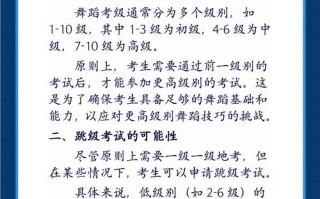 舞蹈考级通常分为多个级别，如
1-10级，其中1-3级为初级，4-6级为中
级，7-10级为高级。
原则上，考生需要通过前一级别的
考试后，才能参加更高级别的考试。这
是为了确保考生具备足够的舞蹈基础和
能力，以应对更高级别舞蹈技巧的挑战。
二、跳级考试的可能性
尽管原则上需要一级一级地考，但
在某些情况下，考生可以申请跳级考试。
具体来说，低级别（如2-6级）的